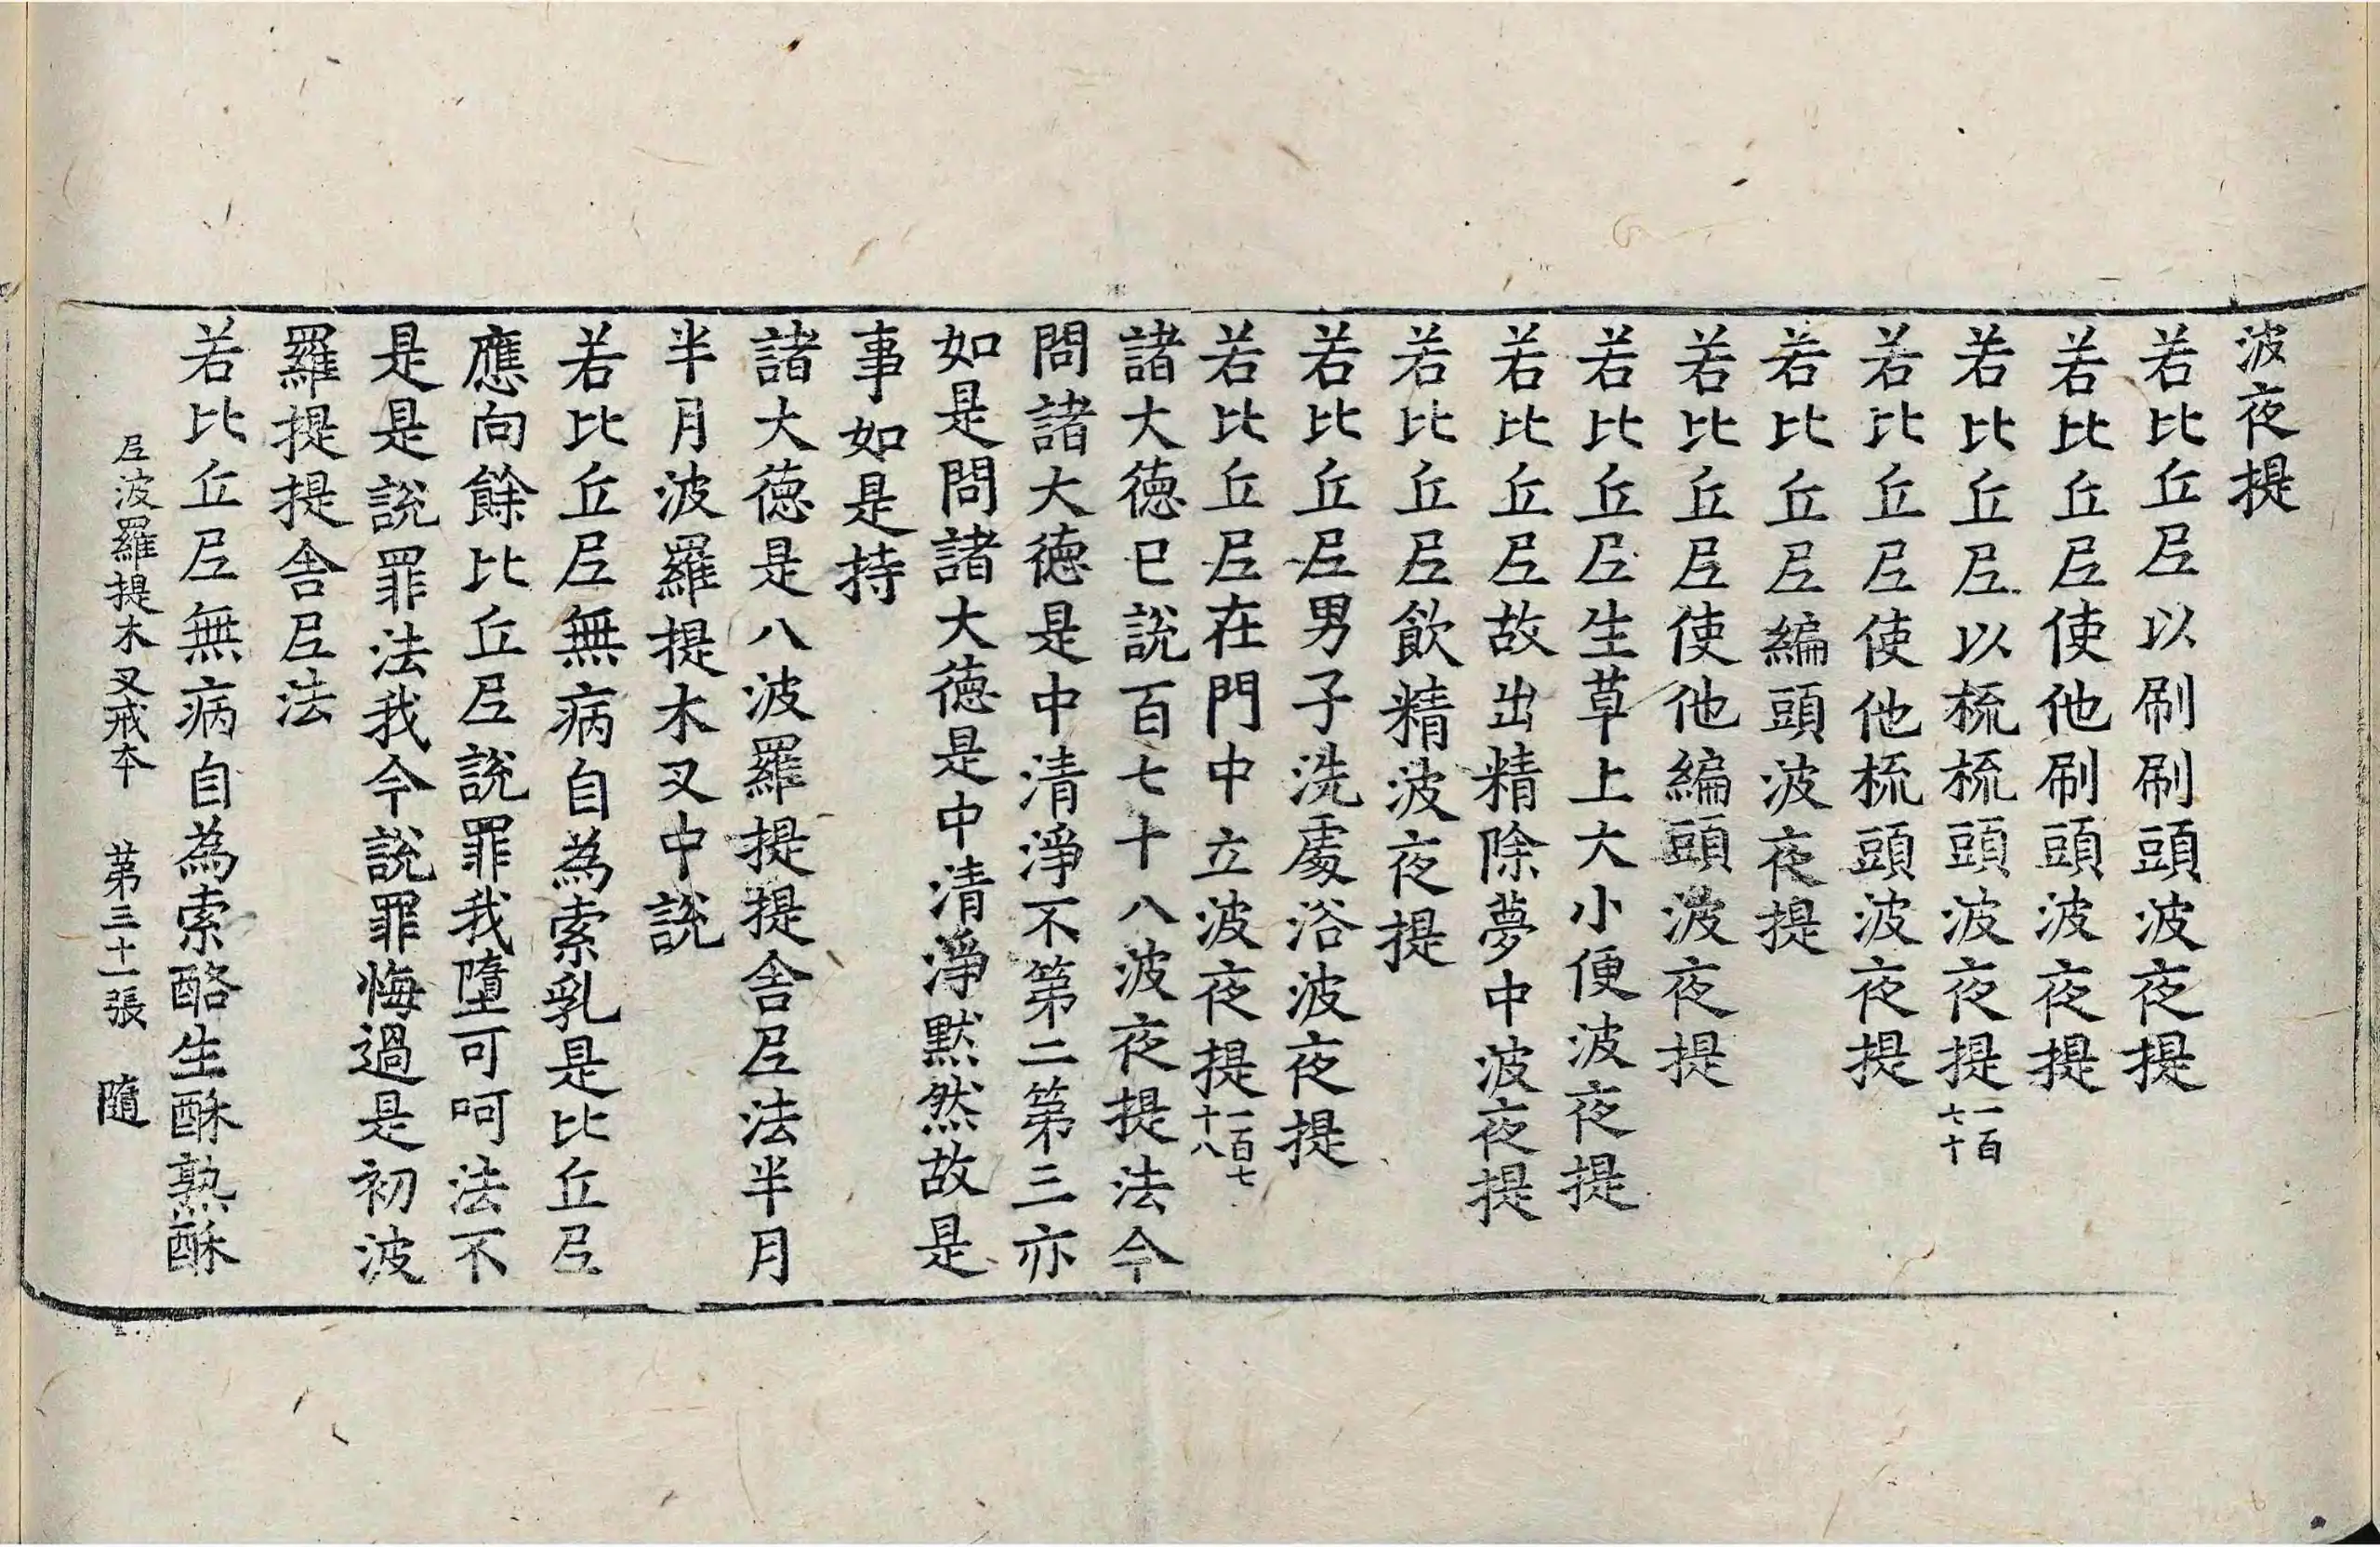 波夜提
若比丘𡰱以刷刷頭波夜提
若比丘𡰱使他刷頭波夜提
若比丘𡰱以梳梳頭波夜提一百七十
若比丘𡰱使他梳頭波夜提
若比丘𡰱編頭波夜提
若比丘𡰱使他編頭波夜提
若比丘𡰱生草上大小便波夜提
若比丘𡰱故出精除夢中波夜提
若比丘𡰱飲精波夜提
若比丘𡰱男子洗處浴波夜提
若比丘𡰱在門中立波夜提一百七十八
諸大德已説百七十八波夜提法今
問諸大德是中清淨不第二第三亦
如是問諸大德是中清淨默然故是
事如是持
諸大德是八波羅提提舍𡰱法半月
半月波羅提木叉中説
若比丘𡰱無病自為索乳是比丘𡰱
應向餘比丘𡰱説罪我墮可呵法不
是是説罪法我今説罪悔過是初波
羅提提舍𡰱法
若比丘𡰱無病自為索酪生酥熟酥
𡰱波羅提木叉戒本 第三十一張 隨